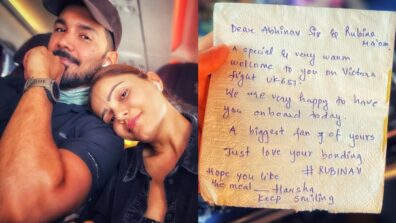 Dear Abhinav Sir & Rubina
Ma'am,
A special & very warm
welcome to you on Vistara
flight UK651!
We are very happy to have
you onboard today.
A biggest fan of yours
Just love your bonding
#RUBINAV
Hope you like
the meal __ Harsha
Keep smiling